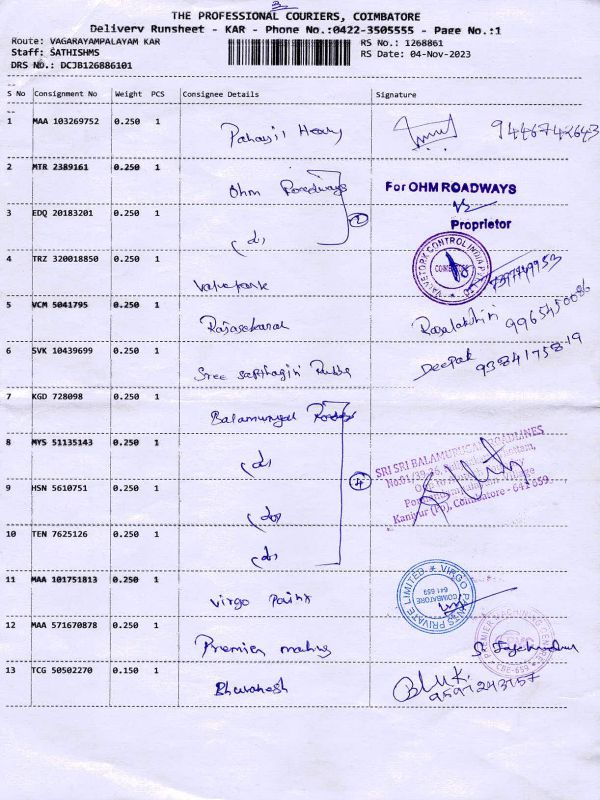 THE PROFESSIONAL COURIERS, COIMBATORE
Delivery Runsheet - KAR - Phone No.:0422-3505555 - Page No.:1
Route: VAGARAYAMPALAYAM KAR
RS No.: 1268861
Staff: SATHISHMS
RS Date: 04-Nov-2023
DRS NO.: DCJB126886101
S No Consignment No Weight PCS Consignee Details Signature
1 MAA 103269752 0.250 1 9446742643
2 MTR 2389161 0.250 1 Ohm Roadways For OHM ROADWAYS
Proprietor
3 EDQ 20183201 0.250 1 (do) 2
4 TRZ 320018850 0.250 1 VALVETORK CONTROL INDIA PVT LTD COIMBATORE
5 VCM 5041795 0.250 1 Rajasekaran Rajalakshmi 9965450086
6 SVK 10439699 0.250 1 Sree Deepak 9384175819
7 KGD 728098 0.250 1 Balamurugan
8 MYS 51135143 0.250 1 (do) SRI SRI BALAMURUGAN ROADLINES
9 HSN 5610751 0.250 1 (do) 4 Kaniyur (Po), Coimbatore - 641 659
10 TEN 7625126 0.250 1 (do)
11 MAA 101751813 0.250 1 Virgo VIRGO PRIVATE LIMITED COIMBATORE 641 659
12 MAA 571670878 0.250 1 Premier CBE-659
13 TCG 50502270 0.150 1 9597243157